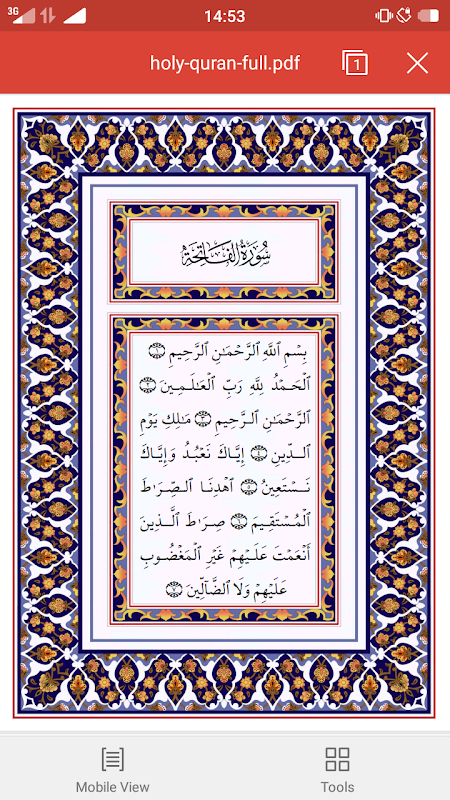 3G 14:53
holy-quran-full.pdf 1
سُورَةُ الفَاتِحَة
بِسْمِ ٱللَّهِ ٱلرَّحْمَٰنِ ٱلرَّحِيمِ ١
ٱلْحَمْدُ لِلَّهِ رَبِّ ٱلْعَٰلَمِينَ ٢
ٱلرَّحْمَٰنِ ٱلرَّحِيمِ ٣ مَٰلِكِ يَوْمِ
ٱلدِّينِ ٤ إِيَّاكَ نَعْبُدُ وَإِيَّاكَ
نَسْتَعِينُ ٥ ٱهْدِنَا ٱلصِّرَٰطَ
ٱلْمُسْتَقِيمَ ٦ صِرَٰطَ ٱلَّذِينَ
أَنْعَمْتَ عَلَيْهِمْ غَيْرِ ٱلْمَغْضُوبِ
عَلَيْهِمْ وَلَا ٱلضَّآلِّينَ ٧
Mobile View
Tools